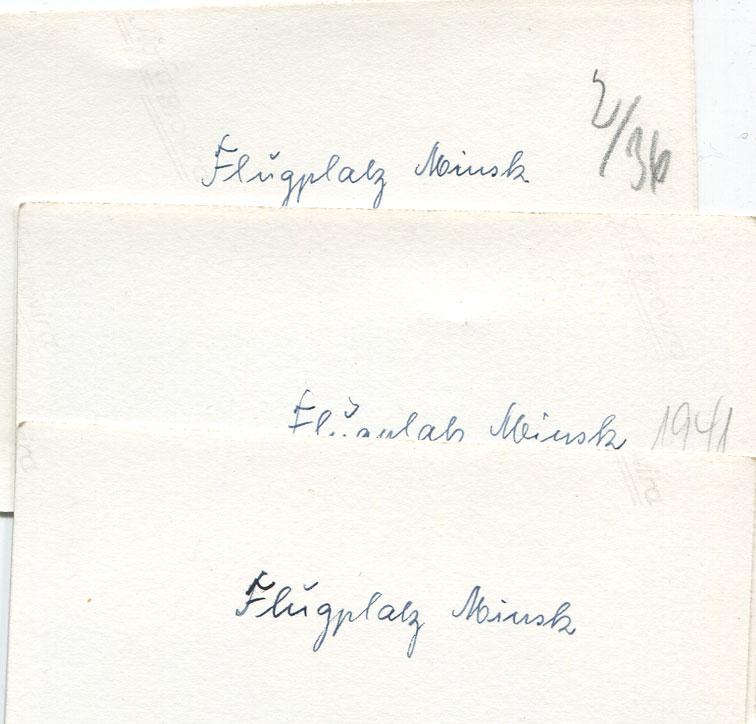 Flugplatz Minsk 2/36
Flugplatz Minsk 1941
Flugplatz Minsk